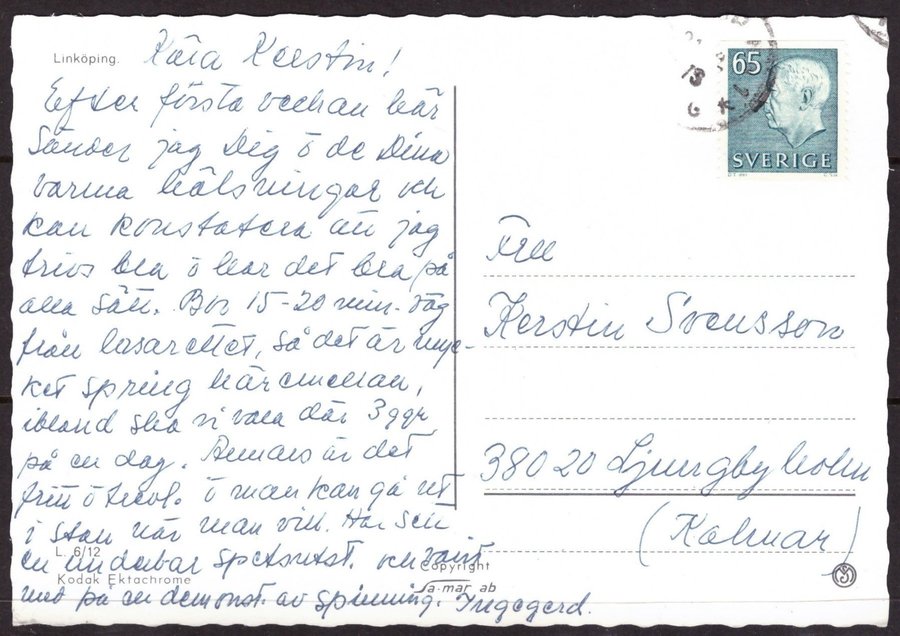 Linköping.
Kära Kerstin!
Efter första veckan här
sänder jag Dig o de Dina
varma hälsningar och
kan konstatera att jag
trivs bra o har det bra på
alla sätt. Bor 15-20 min. väg
från lasarettet, så det är myc-
ket spring häremellan,
ibland ska vi vara där 3 ggr
på en dag. Annars är det
fritt o trevl. o man kan gå ut
i stan när man vill. Har sett
en underbar spetsutst. och varit
med på en demonst. av spinning. Ingegerd.
L. 6/12
Kodak Ektachrome
Copyright
Sa-mar ab
65
SVERIGE
Fru
Kerstin Svensson
38020 Ljungbyholm
(Kalmar)